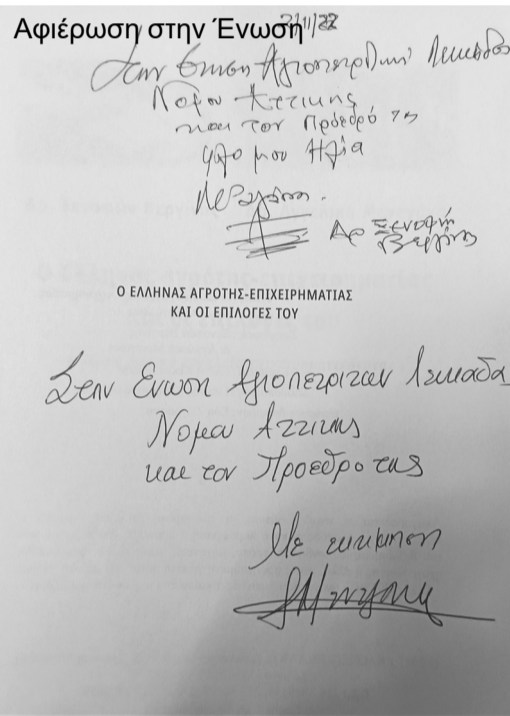 Αφιέρωση στην Ένωση
2/11/22
Στην Ένωση Αγιοπετριτών Λευκάδας
Νομου Αττικης
και τον Πρόεδρό της
φίλο μου Ηλία
Με αγάπη.
Δρ Ξενοφών
Ο ΕΛΛΗΝΑΣ ΑΓΡΟΤΗΣ-ΕΠΙΧΕΙΡΗΜΑΤΙΑΣ
ΚΑΙ ΟΙ ΕΠΙΛΟΓΕΣ ΤΟΥ
Στην Ενωση Αγιοπετριτων Λευκαδα
Νομου Αττικης
και τον Προεδρο της
Με εκτιμηση